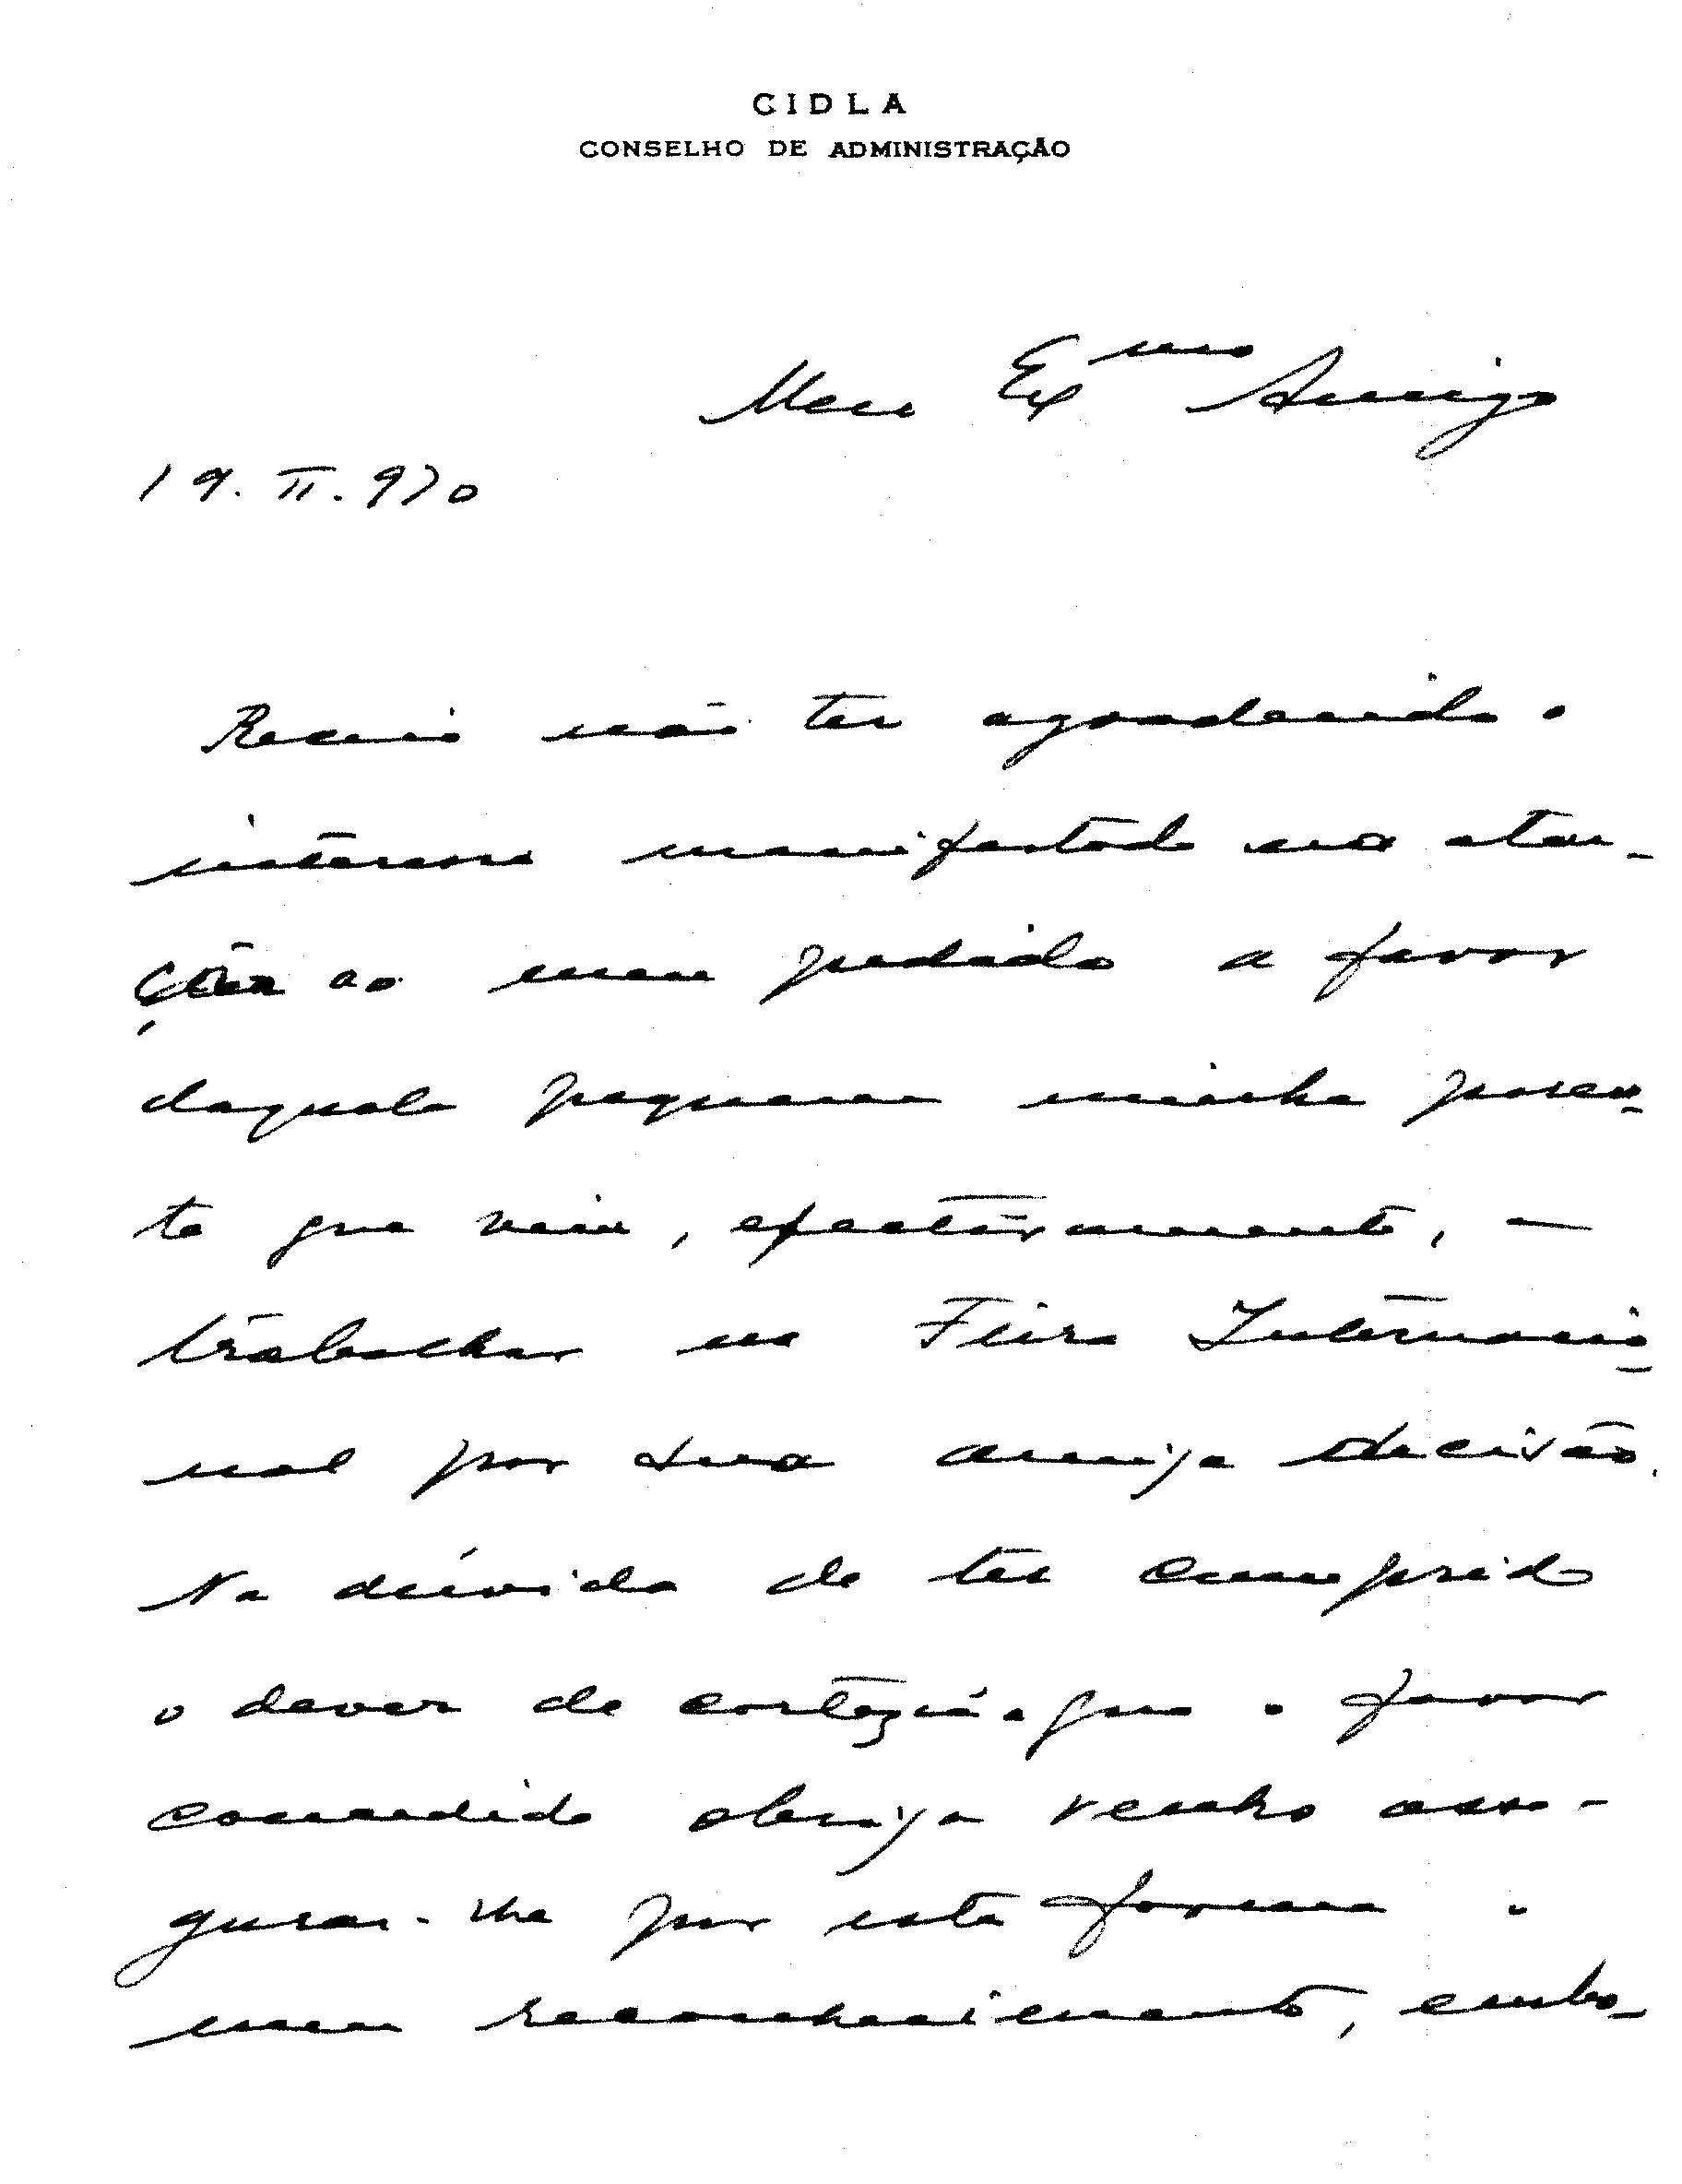 CIDLA
CONSELHO DE ADMINISTRAÇÃO
Meu Exmo Amigo
19.II.970
Receio não ter agradecido o
interesse manifestado na aten-
ção ao meu pedido a favor
daquela pequena minha paren-
te que veiu, efectivamente, —
trabalhar na Feira Internacio-
nal por sua amiga decisão.
Na dúvida de ter cumprido
o dever de cortezia a que o favor
concedido obriga venho asse-
gurar-lhe por esta forma o
meu reconhecimento, embo-